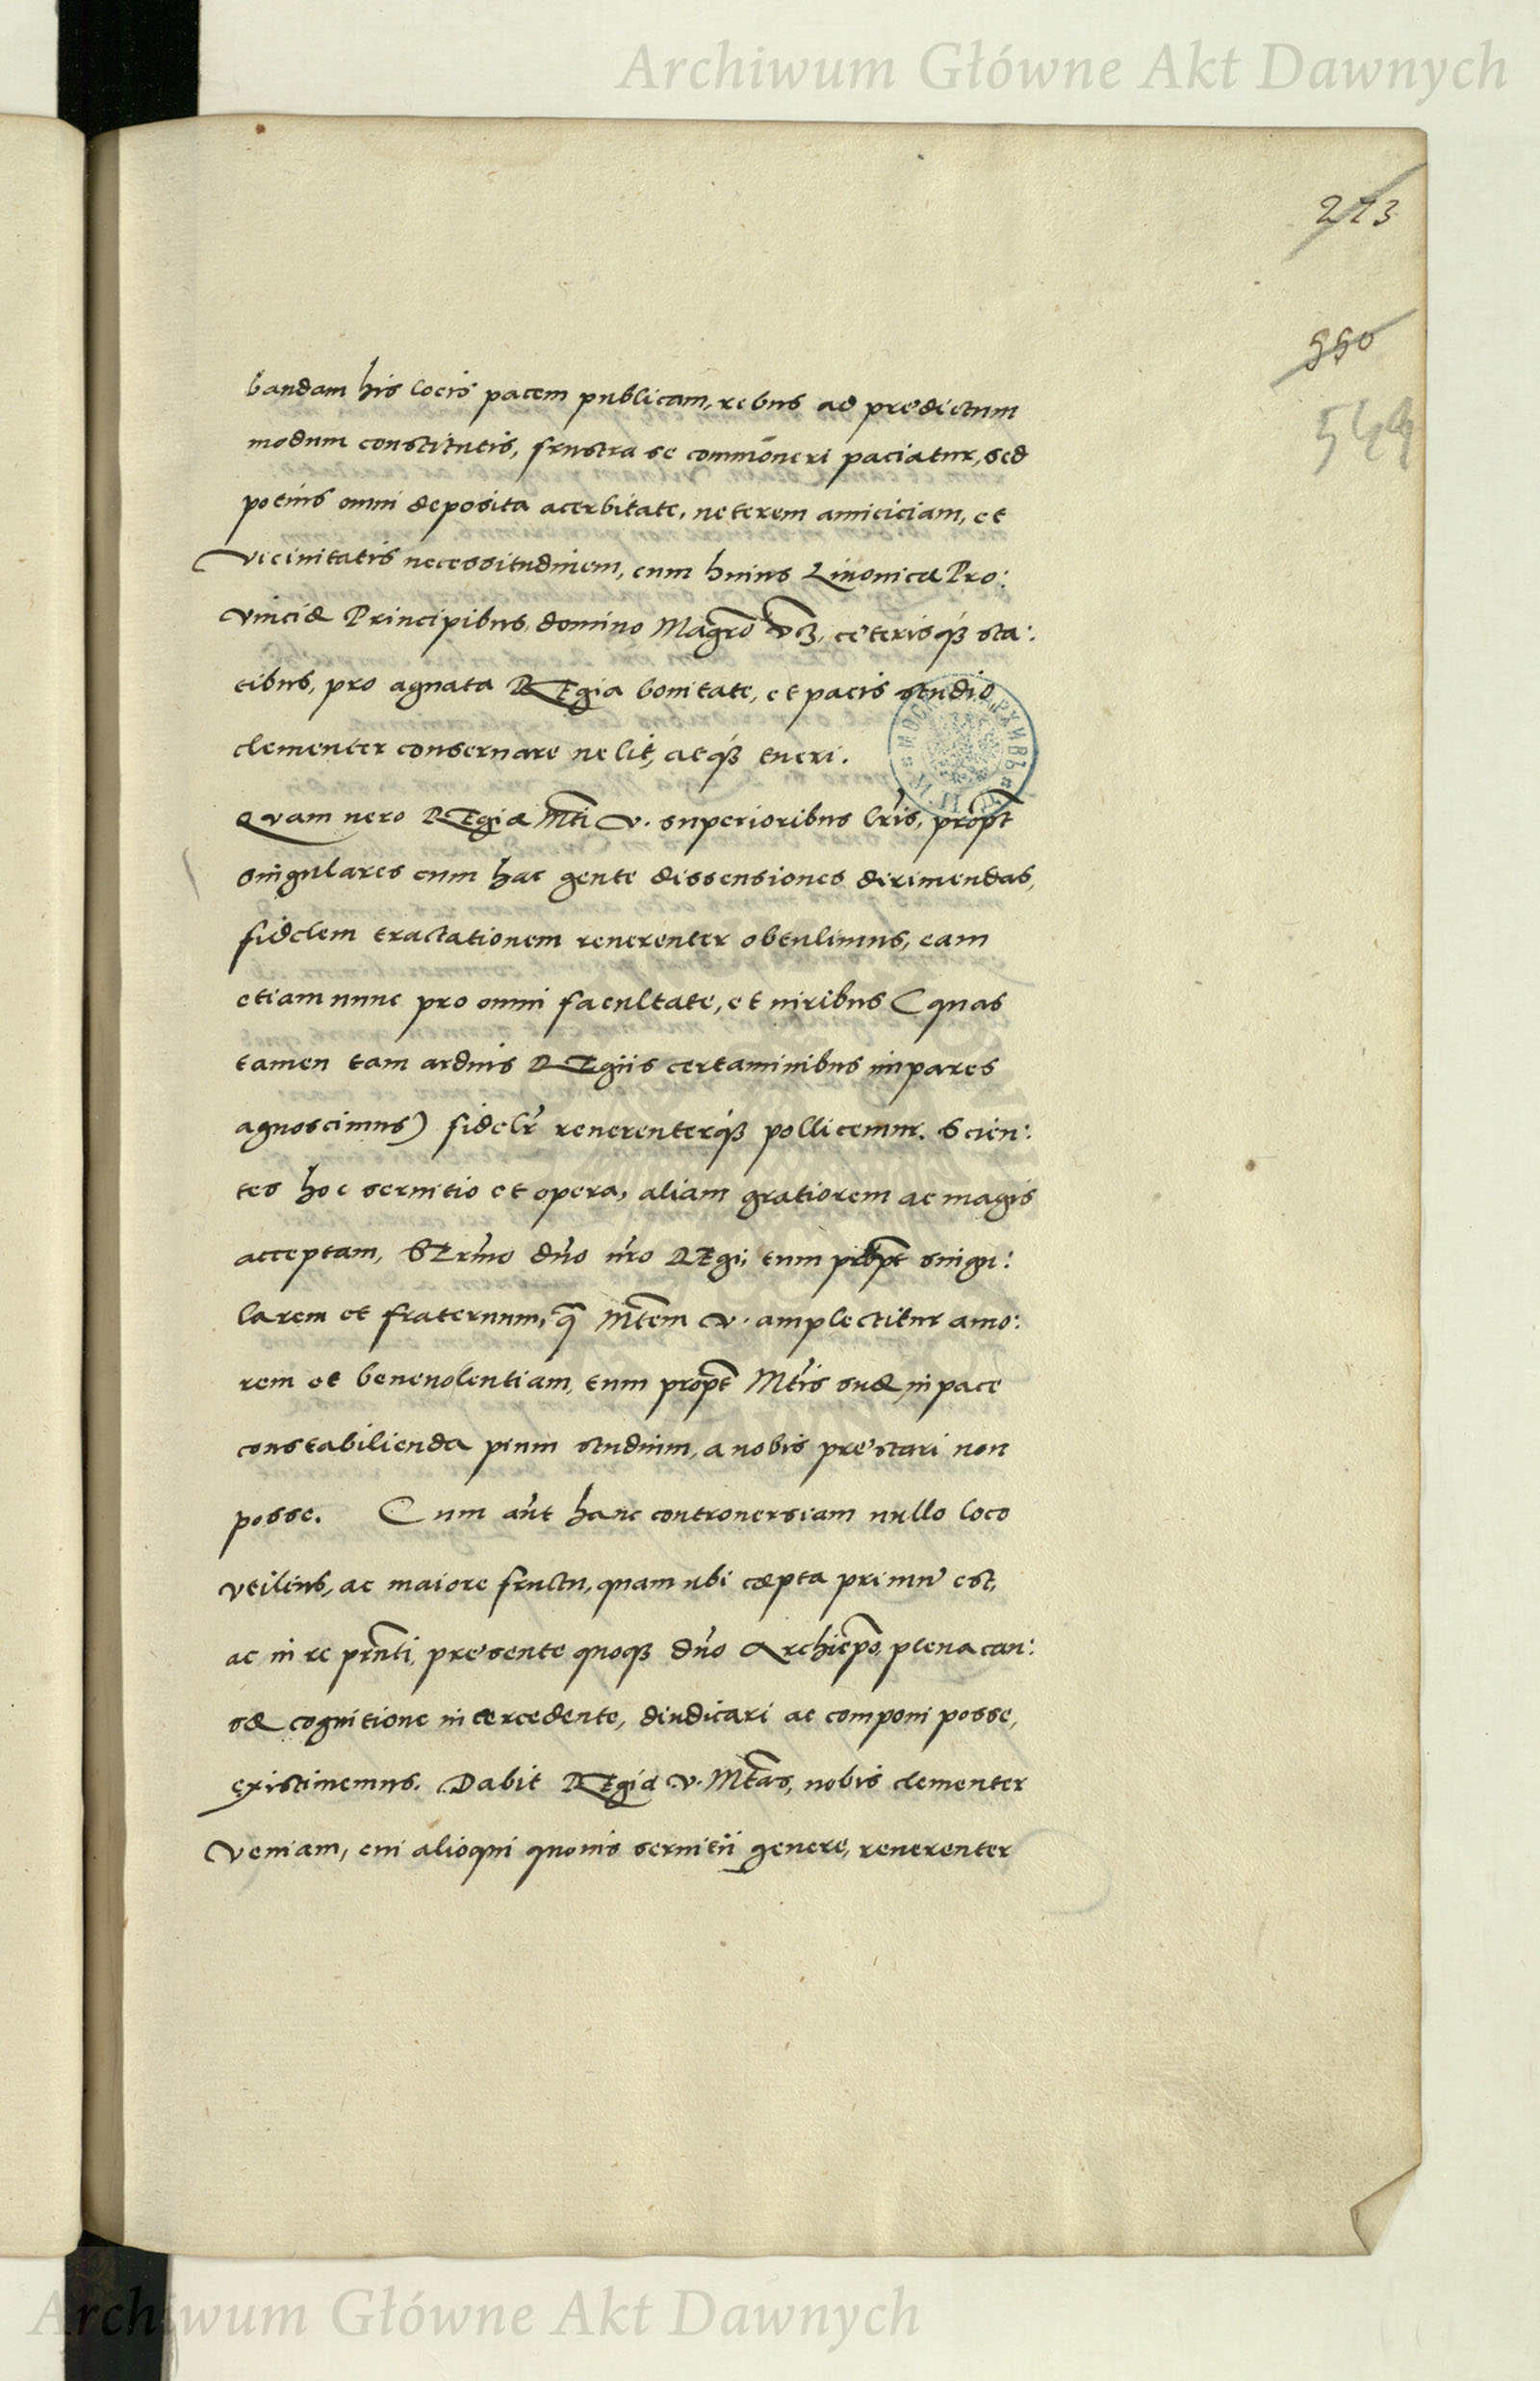 Archiwum Główne Akt Dawnych
213
550
544
bandam his locis pacem publicam, rebus ad prędictum
modum constitutis, frustra se commoneri paciatur, sed
potius omni deposita acerbitate, ueterem amiciciam, et
vicinitatis necessitudinem, cum huius Liuonicæ Pro:
vinciæ Principibus, domino Magro, cęterisq₃ sta:
tibus, pro agnata REgia bonitate, et pacis studio
clementer conseruare uelit, atq₃ tueri.
Quam uero REgiæ Mti V. superioribus lris, propt
singulares cum hac gente dissensiones dirimendas,
fidelem tractationem reuerenter obtulimus, eam
etiam nunc pro omni facultate, et uiribus (quas
tamen tam arduis REgiis certaminibus impares
agnoscimus) fidelr reuerenterq₃ pollicemur. Scien:
tes hoc seruitio et opera, aliam gratiorem ac magis
acceptam, SErmo dno nro REgi, tum propt singu:
larem et fraternum, q Mtem V. amplectitur amo:
rem et beneuolentiam, tum propt Mtis suæ in pace
constabilienda pium studium, a nobis pręstari non
posse. Cum aut hanc controuersiam nullo loco
vtilius, ac maiore fructu, quam ubi cœpta primu est,
ac in re prnti, pręsente quoq₃ dno Archiepo, plena cau:
sæ cognitione intercedente, diudicari ac componi posse,
existimemus. Dabit REgia V. Mtas, nobis clementer
veniam, cui alioqui quouis seruitii genere, reuerenter
Archiwum Główne Akt Dawnych